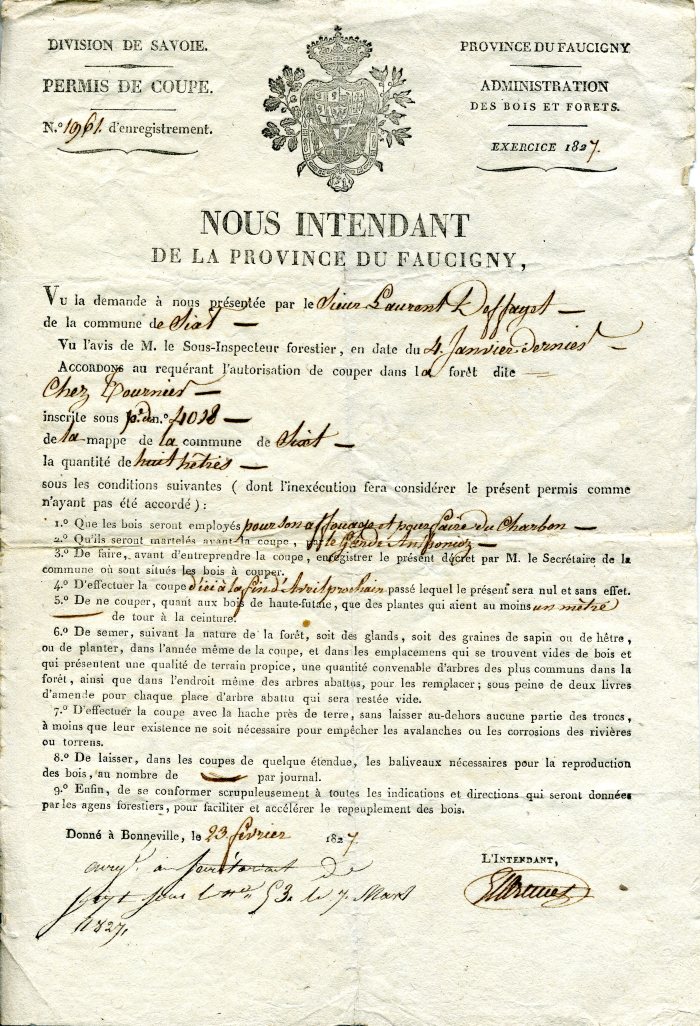 DIVISION DE SAVOIE.
PERMIS DE COUPE.
N.º 1961. d'enregistrement.
PROVINCE DU FAUCIGNY
ADMINISTRATION
DES BOIS ET FORETS.
EXERCICE 1827.
NOUS INTENDANT
DE LA PROVINCE DU FAUCIGNY,
Vu la demande à nous présentée par le Sieur Laurent Deffayet —
de la commune de Sixt —
Vu l'avis de M. le Sous-Inspecteur forestier, en date du 4. Janvier dernier —
Accordons au requérant l'autorisation de couper dans la forêt dite —
Chez Tournier —
inscrite sous p.e d. n.º 4018 —
de la mappe de la commune de Sixt —
la quantité de huit hêtres —
sous les conditions suivantes ( dont l'inexécution fera considérer le présent permis comme
n'ayant pas été accordé ) :
1.º Que les bois seront employés pour son affouage et pour faire du Charbon —
2.º Qu'ils seront martelés avant la coupe, par le Garde
3.º De faire, avant d'entreprendre la coupe, enregistrer le présent décret par M. le Secrétaire de la
commune où sont situés les bois à couper.
4.º D'effectuer la coupe d'ici à la fin d'Avril prochain passé lequel le présent sera nul et sans effet.
5.º De ne couper, quant aux bois de haute-futaie, que des plantes qui aient au moins un mètre
— de tour à la ceinture.
6.º De semer, suivant la nature de la forêt, soit des glands, soit des graines de sapin ou de hêtre,
ou de planter, dans l'année même de la coupe, et dans les emplacemens qui se trouvent vides de bois et
qui présentent une qualité de terrain propice, une quantité convenable d'arbres des plus communs dans la
forêt, ainsi que dans l'endroit même des arbres abattus, pour les remplacer; sous peine de deux livres
d'amende pour chaque place d'arbre abattu qui sera restée vide.
7.º D'effectuer la coupe avec la hache près de terre, sans laisser au-dehors aucune partie des troncs,
à moins que leur existence ne soit nécessaire pour empêcher les avalanches ou les corrosions des rivières
ou torrens.
8.º De laisser, dans les coupes de quelque étendue, les baliveaux nécessaires pour la reproduction
des bois, au nombre de — par journal.
9.º Enfin, de se conformer scrupuleusement à toutes les indications et directions qui seront données
par les agens forestiers, pour faciliter et accélérer le repeuplement des bois.
Donné à Bonneville, le 23. février 1827.
L'INTENDANT,
au secrétariat de
Sixt sous le n.º 53. le 7. Mars
1827.